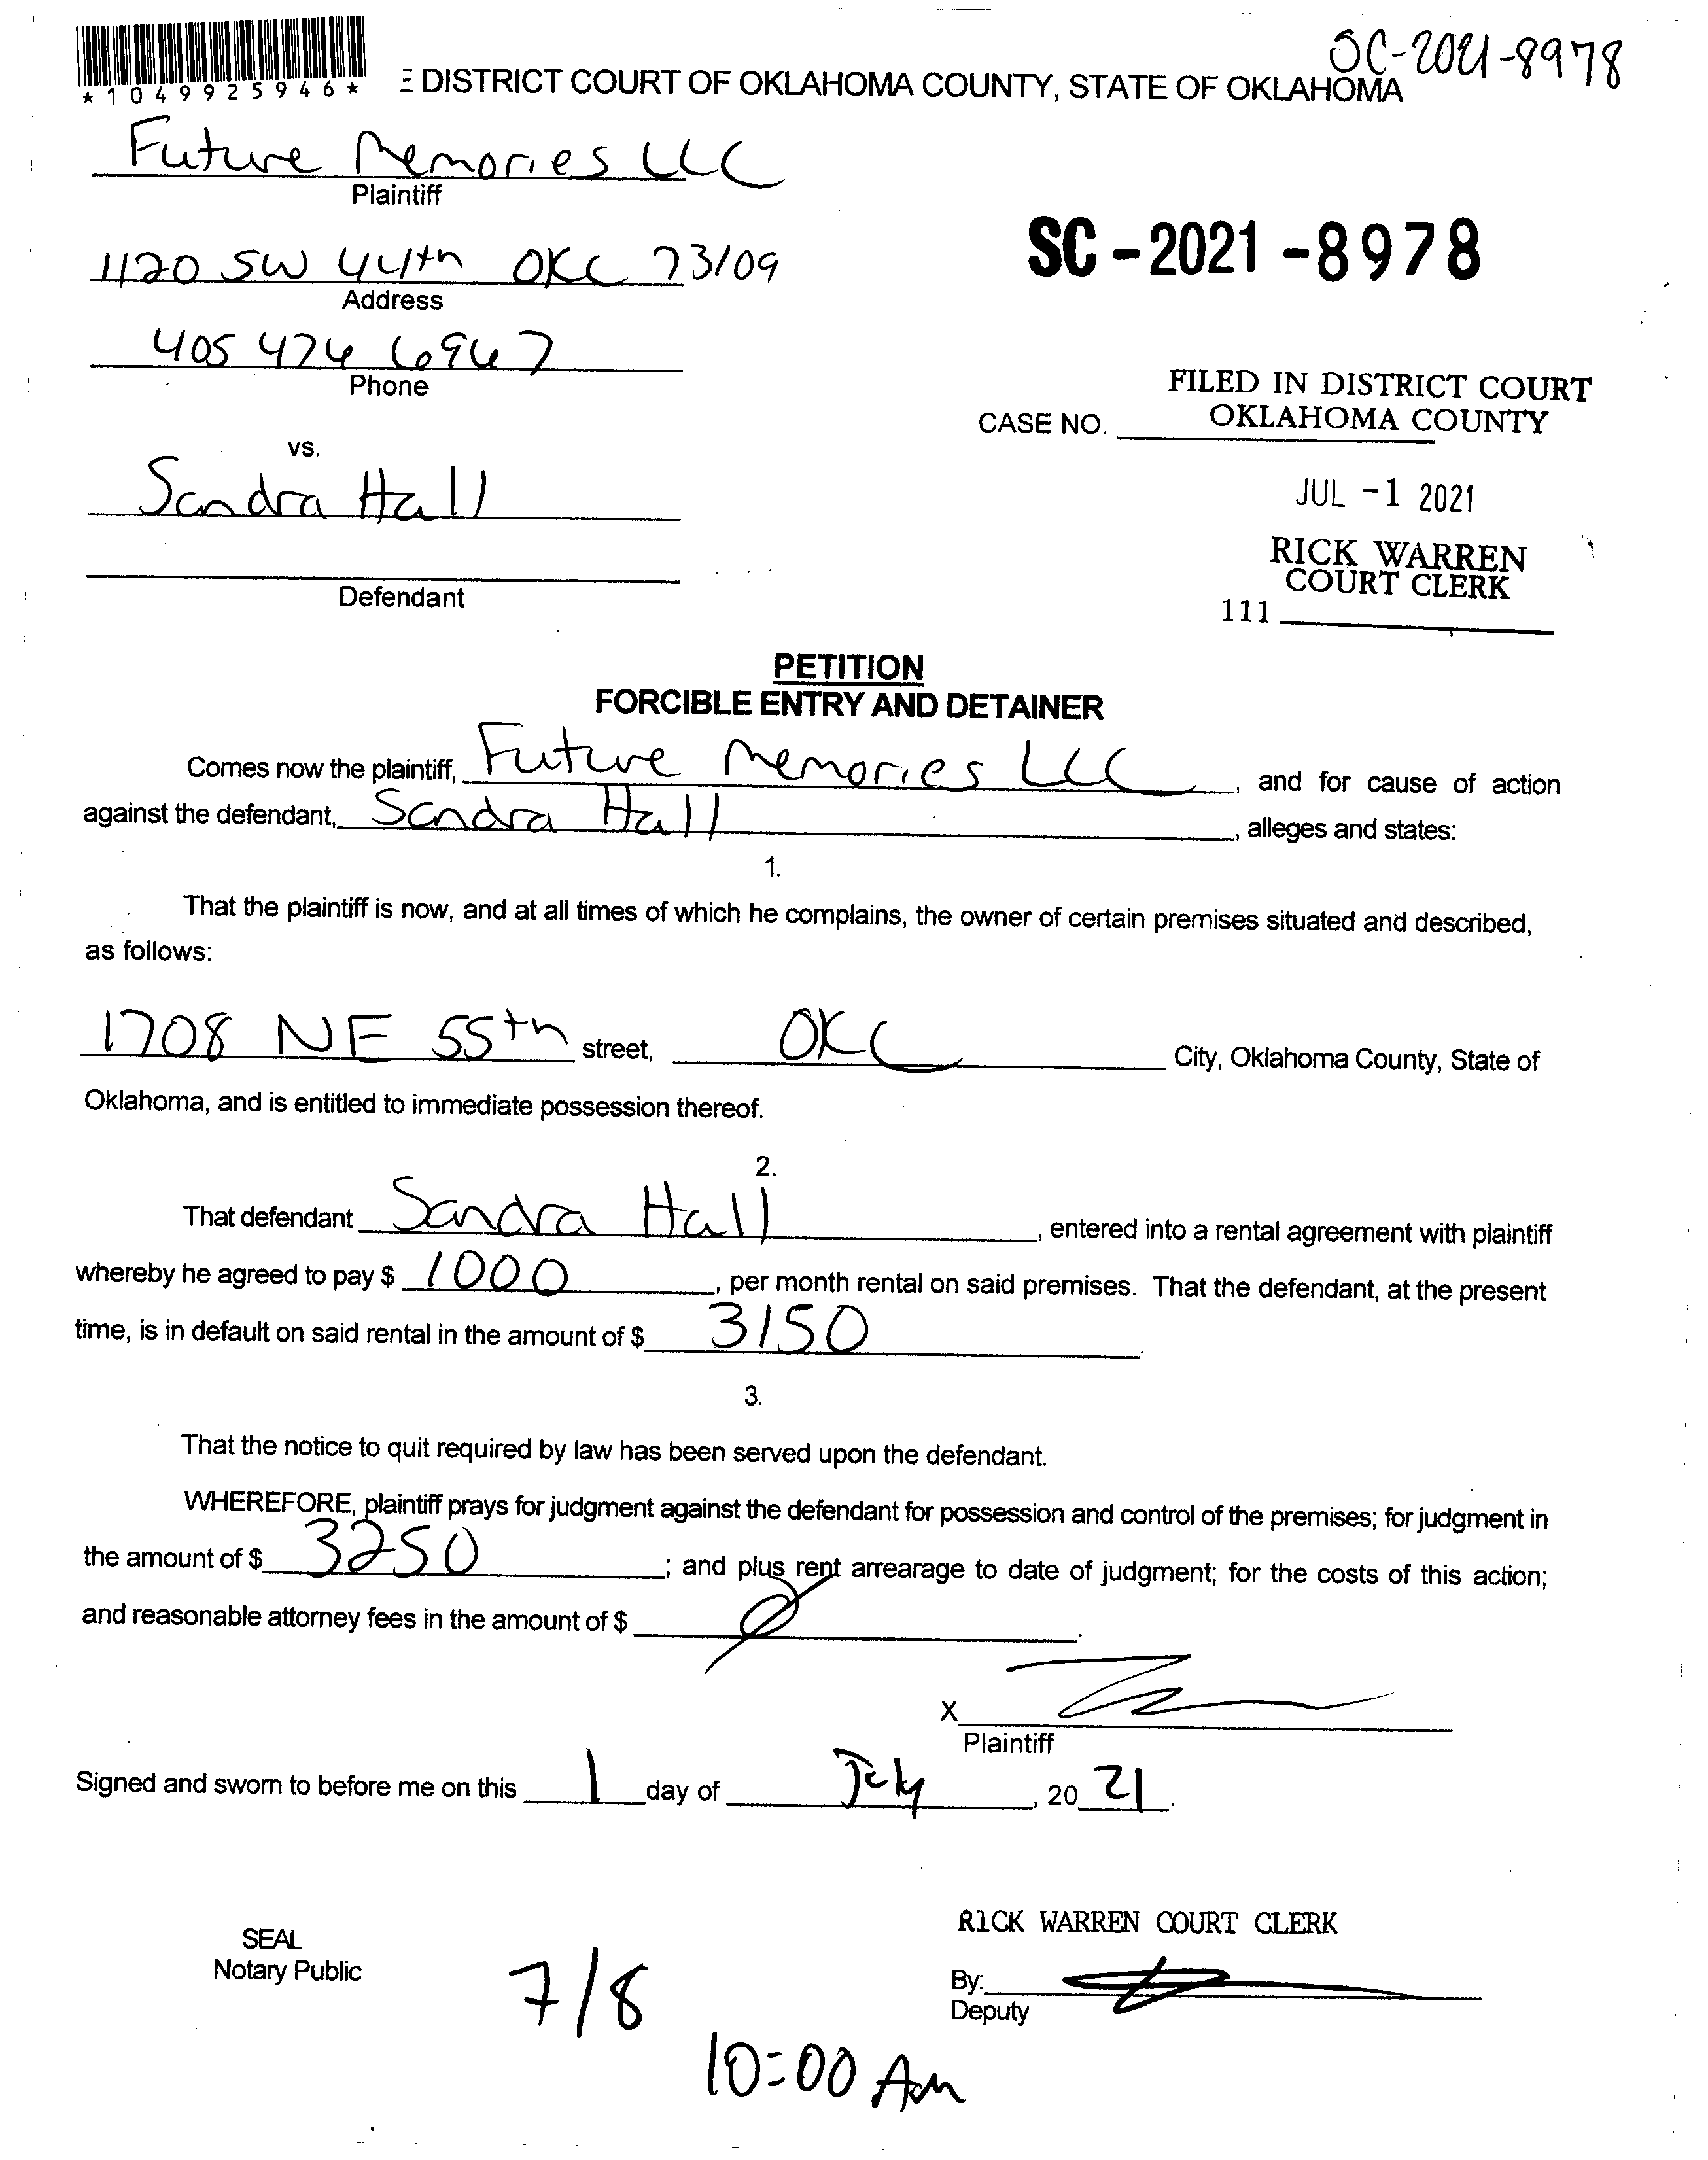 SC-2021-8978
*1049925946*
E DISTRICT COURT OF OKLAHOMA COUNTY, STATE OF OKLAHOMA
Future Memories LLC
Plaintiff
1120 SW 44th OKC 73109
Address
SC-2021-8978
405 474 6967
Phone
FILED IN DISTRICT COURT
CASE NO. OKLAHOMA COUNTY
vs.
Sandra Hall
JUL -1 2021
RICK WARREN
COURT CLERK
Defendant
111
PETITION
FORCIBLE ENTRY AND DETAINER
Comes now the plaintiff, Future Memories LLC, and for cause of action
against the defendant, Sandra Hall, alleges and states:
1.
That the plaintiff is now, and at all times of which he complains, the owner of certain premises situated and described,
as follows:
1708 NE 55th street, OKC City, Oklahoma County, State of
Oklahoma, and is entitled to immediate possession thereof.
2.
That defendant Sandra Hall, entered into a rental agreement with plaintiff
whereby he agreed to pay $ 1000, per month rental on said premises. That the defendant, at the present
time, is in default on said rental in the amount of $ 3150.
3.
That the notice to quit required by law has been served upon the defendant.
WHEREFORE, plaintiff prays for judgment against the defendant for possession and control of the premises; for judgment in
the amount of $ 3250; and plus rent arrearage to date of judgment; for the costs of this action;
and reasonable attorney fees in the amount of $ .
X
Plaintiff
Signed and sworn to before me on this 1 day of July, 20 21.
RICK WARREN COURT CLERK
SEAL
Notary Public
7/8
By:
Deputy
10:00 Am